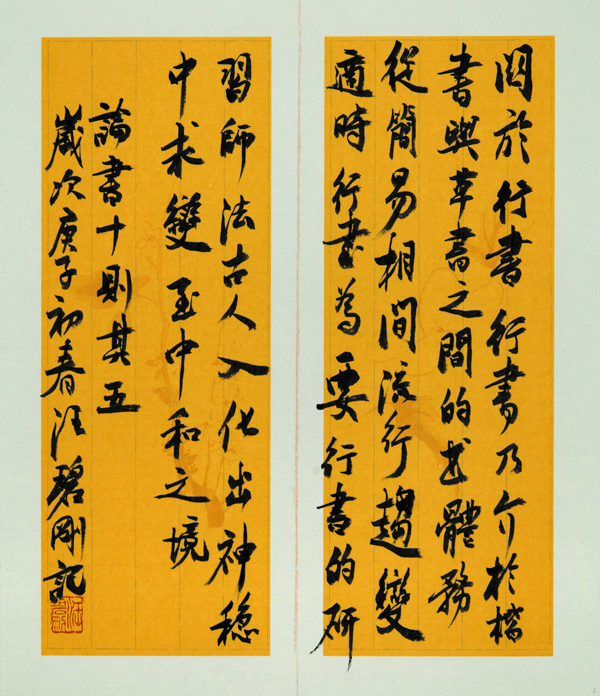 關於行書行書乃介於楷
書與草書之間的書體務
從簡易相間流行趨變
適時行書為要行書的研
習師法古人入化出神穩
中求變至中和之境
論書十則其五
歲次庚子初春汪碧剛記